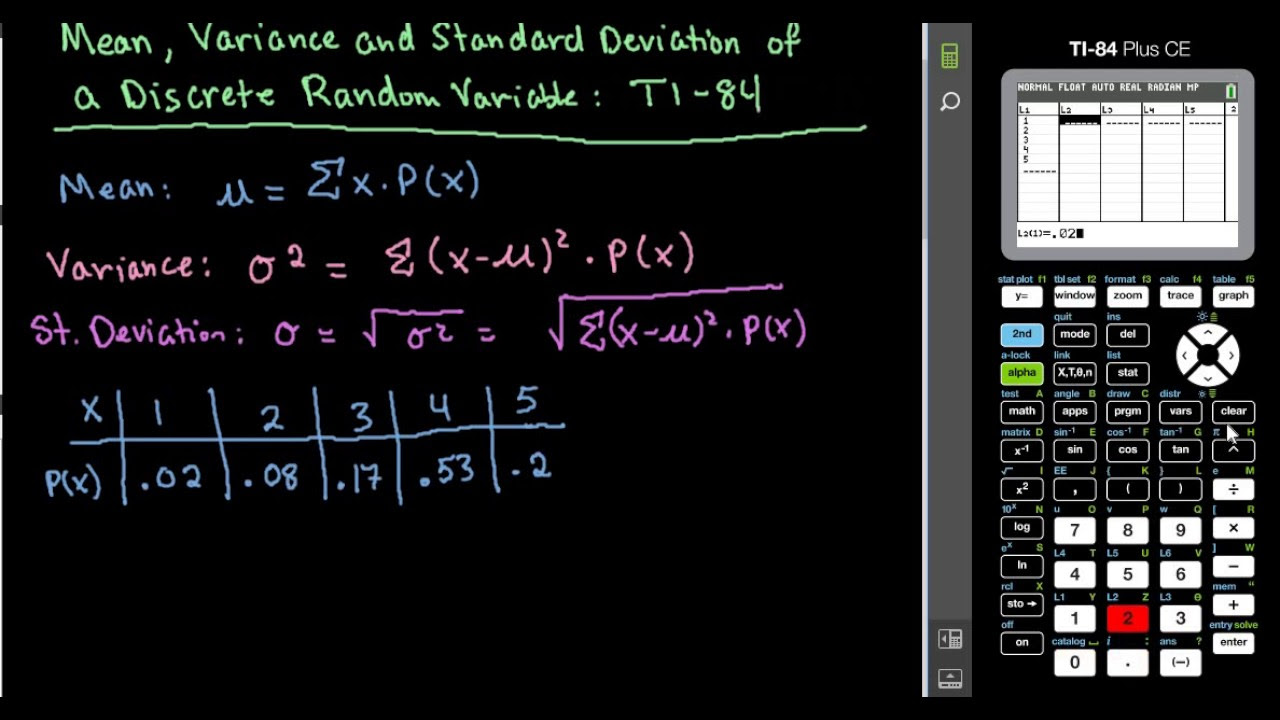 Mean, Variance and Standard Deviation of
a Discrete Random Variable: TI-84
Mean: μ = Σ x · P(x)
Variance: σ² = Σ (x-μ)² · P(x)
St. Deviation: σ = √σ² = √Σ(x-μ)² · P(x)
X 1 2 3 4 5
P(x) .02 .08 .17 .53 .2
TI-84 Plus CE
NORMAL FLOAT AUTO REAL RADIAN MP
L1 L2 L3 L4 L5 2
1 ------ ------ ------ ------
2
3
4
5
------
L2(1)=.02
stat plot f1 tbl set f2 format f3 calc f4 table f5
y= window zoom trace graph
quit ins
2nd mode del
a-lock link list
alpha X,T,θ,n stat
test A angle B draw C distr
math apps prgm vars clear
matrix D sin⁻¹ E cos⁻¹ F tan⁻¹ G π H
x⁻¹ sin cos tan ^
√ I EE J { K } L e M
x² , ( ) ÷
10ˣ N u O v P w Q [ R
log 7 8 9 ×
eˣ S L4 T L5 U L6 V ] W
ln 4 5 6 −
rcl X L1 Y L2 Z L3 θ mem "
sto→ 1 2 3 +
off catalog ⎵ i : ans ? entry solve
on 0 . (−) enter